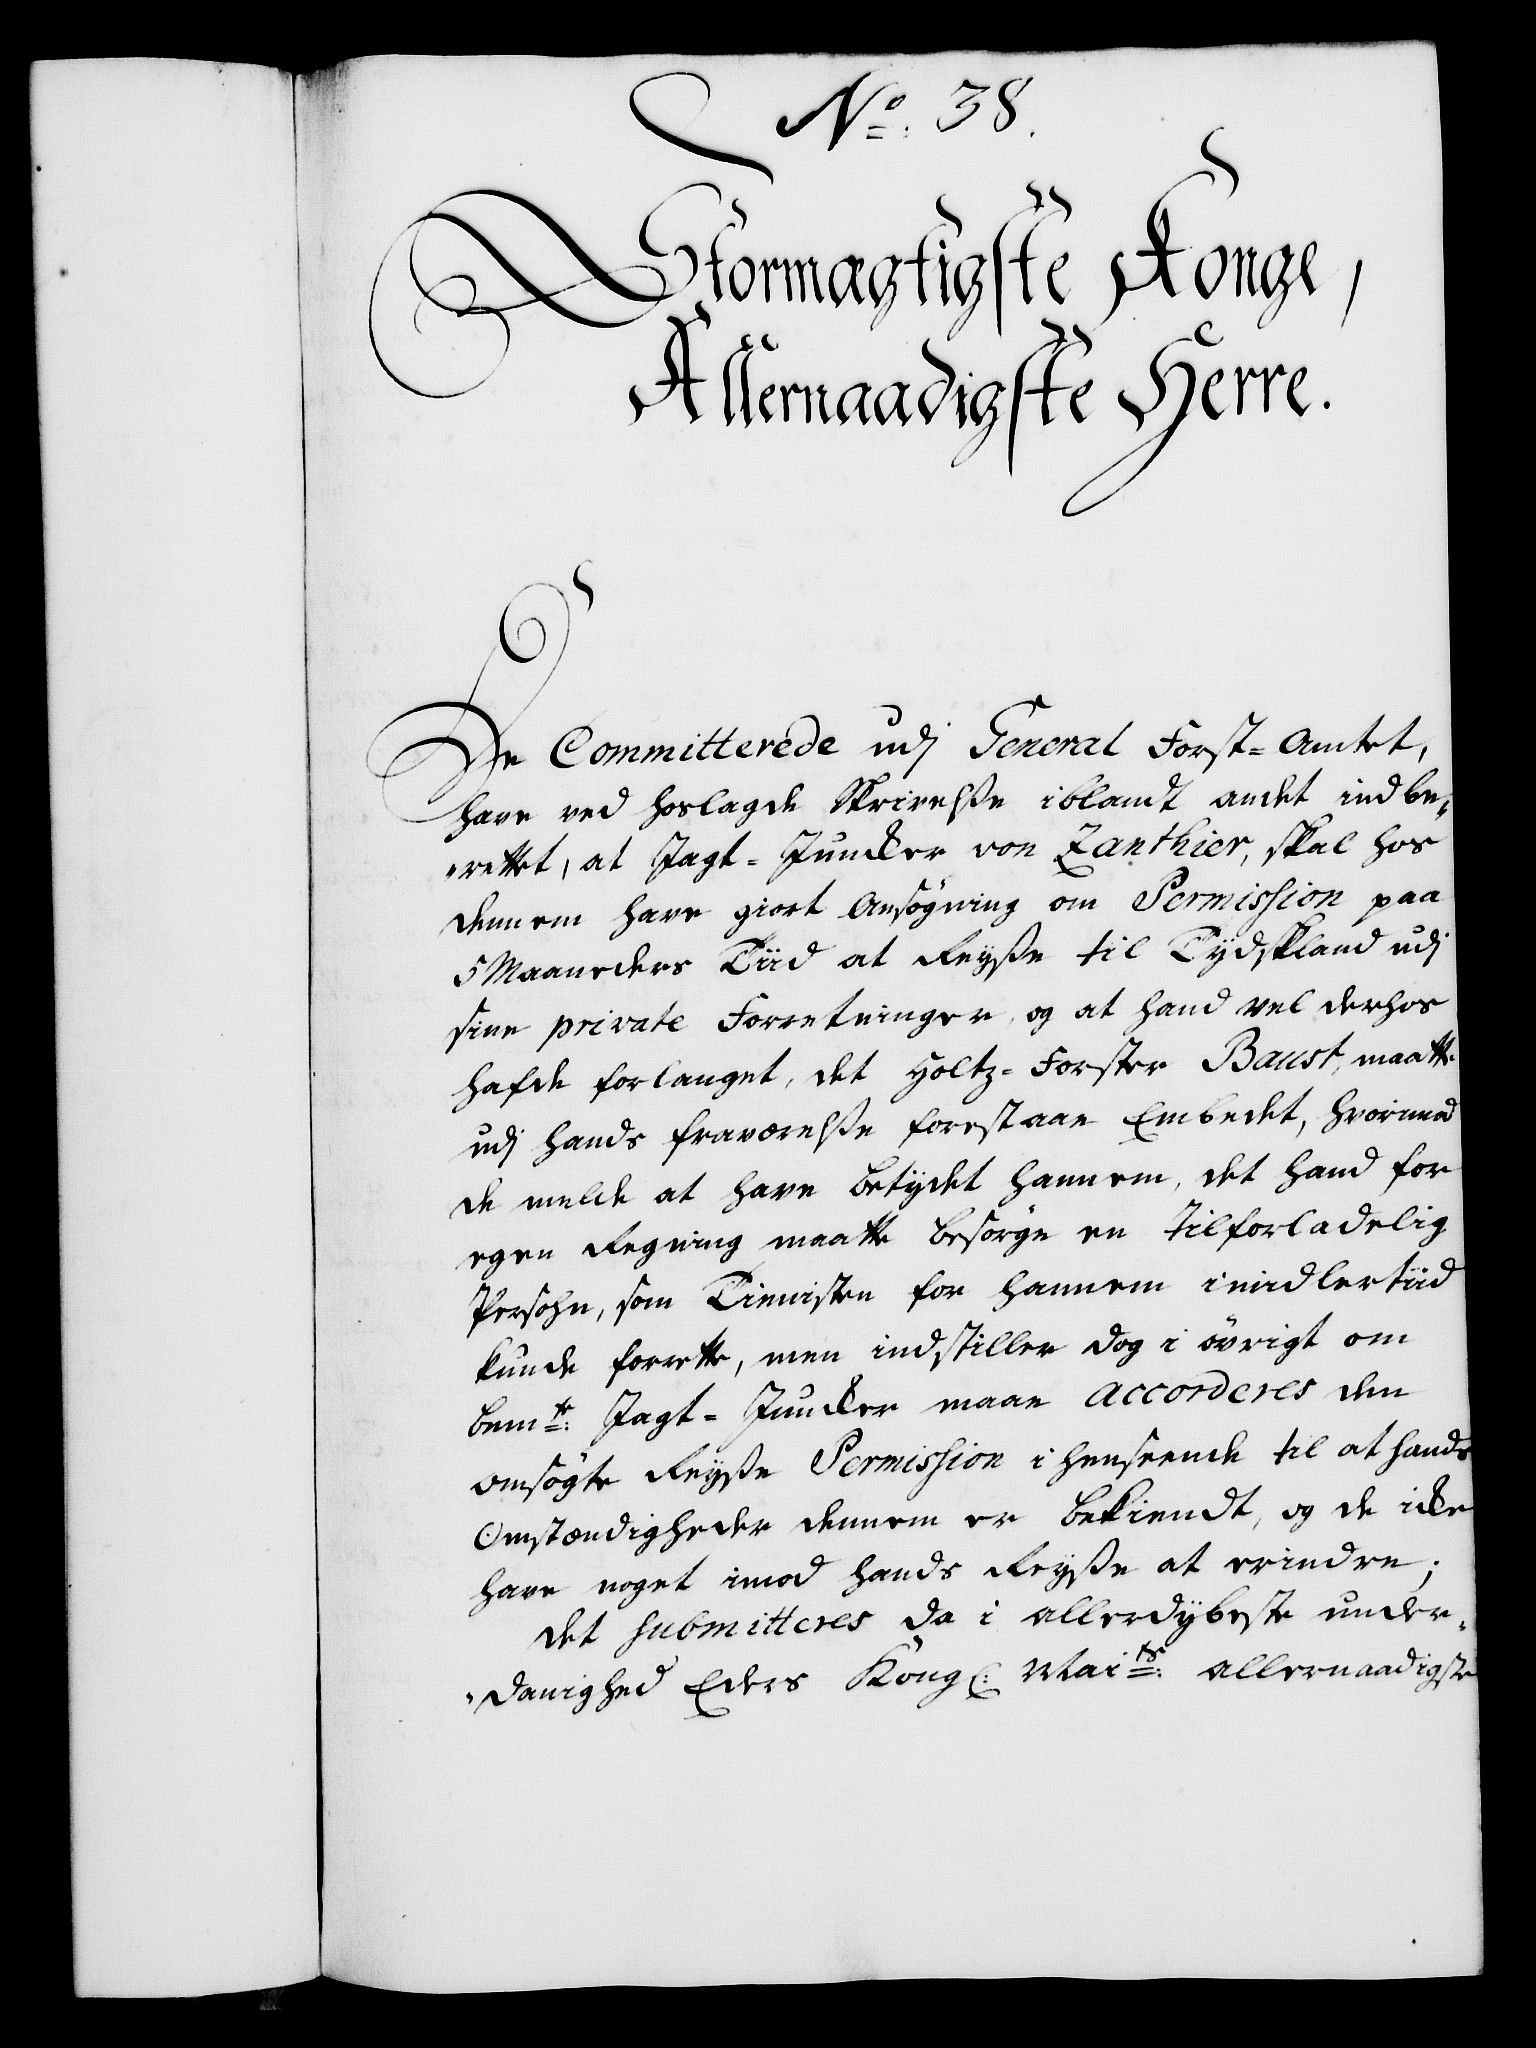 No: 38.
Stormægtigste Konge,
Allernaadigste Herre.
De Committerede udj General Forst=Amtet,
have ved hoslagde Skrivelße iblandt andet indbe„
„rettet, at Jagt=Juncker von Zanthier, skal hos
dennem have giort Ansögning om Permission paa
5 Maaneders Tiid at Reyße til Tydskland udj
sine private Forretninger, og at hand vel derhos
hafde forlanget, det Holtz=Forster Baust, maatte
udj hands fraværelße forestaae Embedet, hvorimod
de melde at have betydet hannem, det hand for
egen Regning maatte besörge en tilforladelig
Persohn, som Tienisten for hannem imidlertiid
kunde forrette, men indstiller dog i övrigt om
bemte: Jagt=Juncker maae accorderes den
omsögte Reyße Permission i henseende til at hands
Omstændigheder dennem er bekiendt, og de icke
have noget imod hands Reyße at erindre;
det submitteres da i allerdybeste under„
„danighed Eders Kongl: Maits: allernaadigste